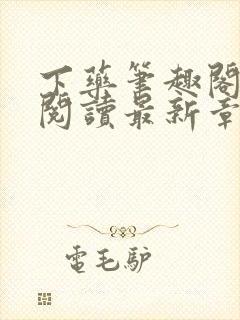 下藥筆趣閣
閱讀最新章
電毛驴